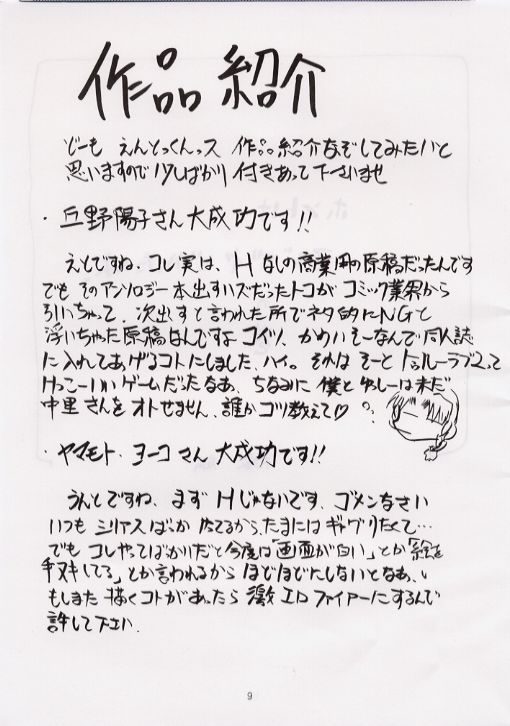 作品紹介
どーも えんとっくんっス 作品紹介なぞしてみたいと
思いますので少しばかり付きあって下さいませ
・丘野陽子さん大成功です!!
えとですね、コレ実は、Hなしの商業用の原稿だったんです
でも そのアンソロジー本出すハズだったトコが コミック業界から
引いちゃって、次出すと言われた所でネタ的にNGと
浮いちゃった原稿なんですよ コイツ、かわいそーなんで同人誌
に入れてあげるコトにしました、ハイ。それは そーと トゥルーラブ2って
けっこーいいゲームだったなあ、ちなみに 僕と ゆしーは未だ
中里さんをオトせません、誰かコツ教えて♡
・ヤマモト・ヨーコさん大成功です!!
うんとですね、まず Hじゃないです、ゴメンなさい
いつも シリアスばっか だてるから、たまにはギャグりたくて…
でも コレやってばかりだと今度は「画面が白い」とか「絵を
手ヌキしてる」とか言われるから ほどほどにしないとなあ、
もしまた 描くコトがあったら 激エロファイアーにするんで
許して下さい.
9